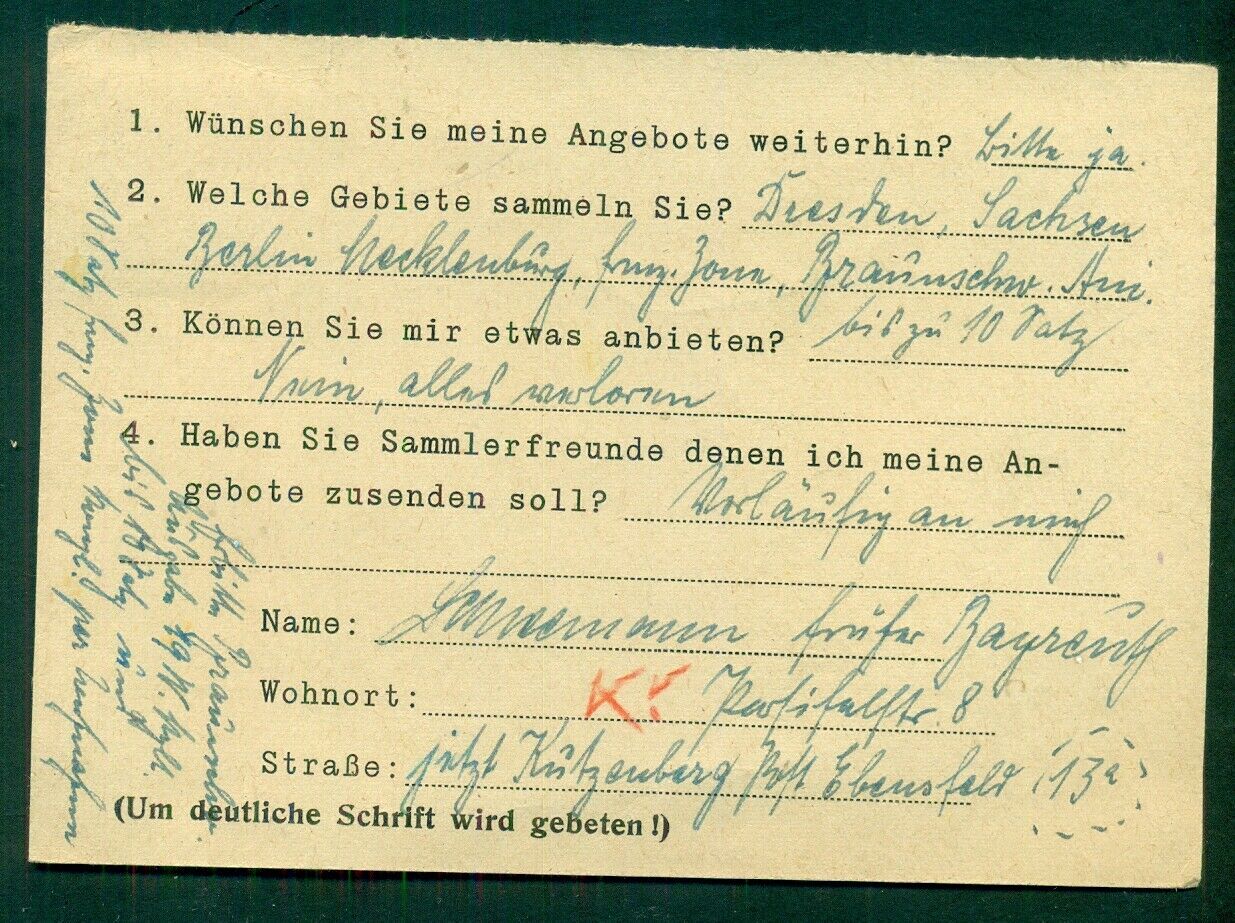 1. Wünschen Sie meine Angebote weiterhin? Bitte ja.
2. Welche Gebiete sammeln Sie? Dresden, Sachsen
Berlin Mecklenburg, frnz. Zone, Braunschw. Am.
3. Können Sie mir etwas anbieten? bis zu 10 Satz
Nein, alles verloren
4. Haben Sie Sammlerfreunde denen ich meine An-
gebote zusenden soll? Vorläufig an mich
Name: früher Bayreuth
Wohnort: K! Parsifalstr. 8
Straße: jetzt Kutzenberg Post Ebensfeld (13a)
(Um deutliche Schrift wird gebeten!)
10 Satz frnz. Zone per Nachnahme
bis 10 Satz und
Ausgabe
bitte Braunschw.